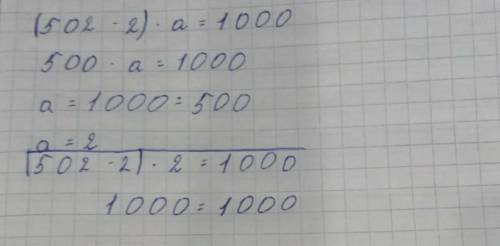 (502 - 2) · a = 1000
500 · a = 1000
a = 1000 : 500
a = 2
(502 - 2) · 2 = 1000
1000 = 1000